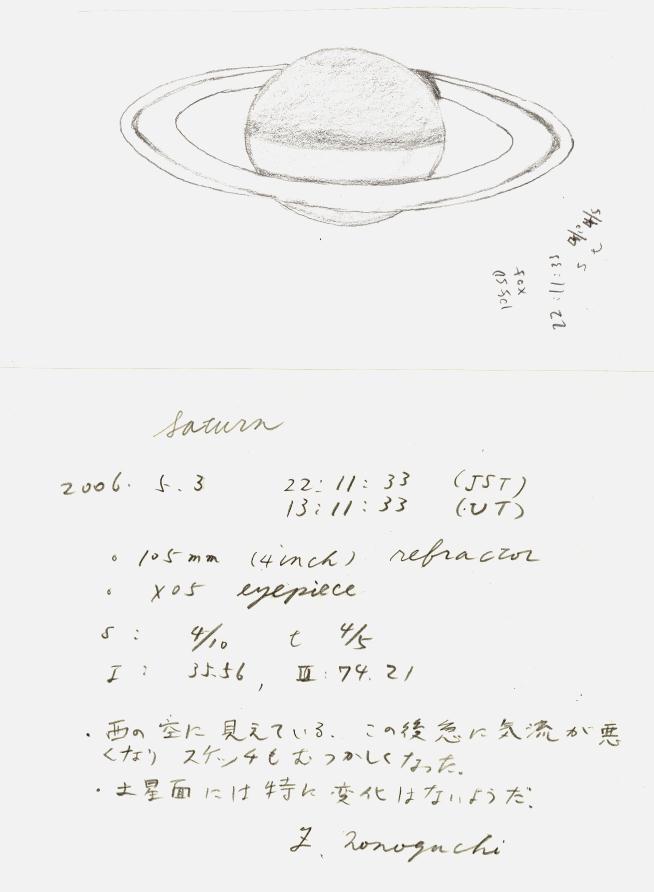 Saturn
2006. 5.3 22:11:33 (JST)
13:11:33 (UT)
• 105mm (4inch) refractor
• X05 eyepiece
S : 4/10 t 4/5
I : 35.56, III: 74.21
・西の空に見えている。この後急に気流が悪
くなり スケッチもむつかしくなった。
・土星面には特に変化はないようだ。